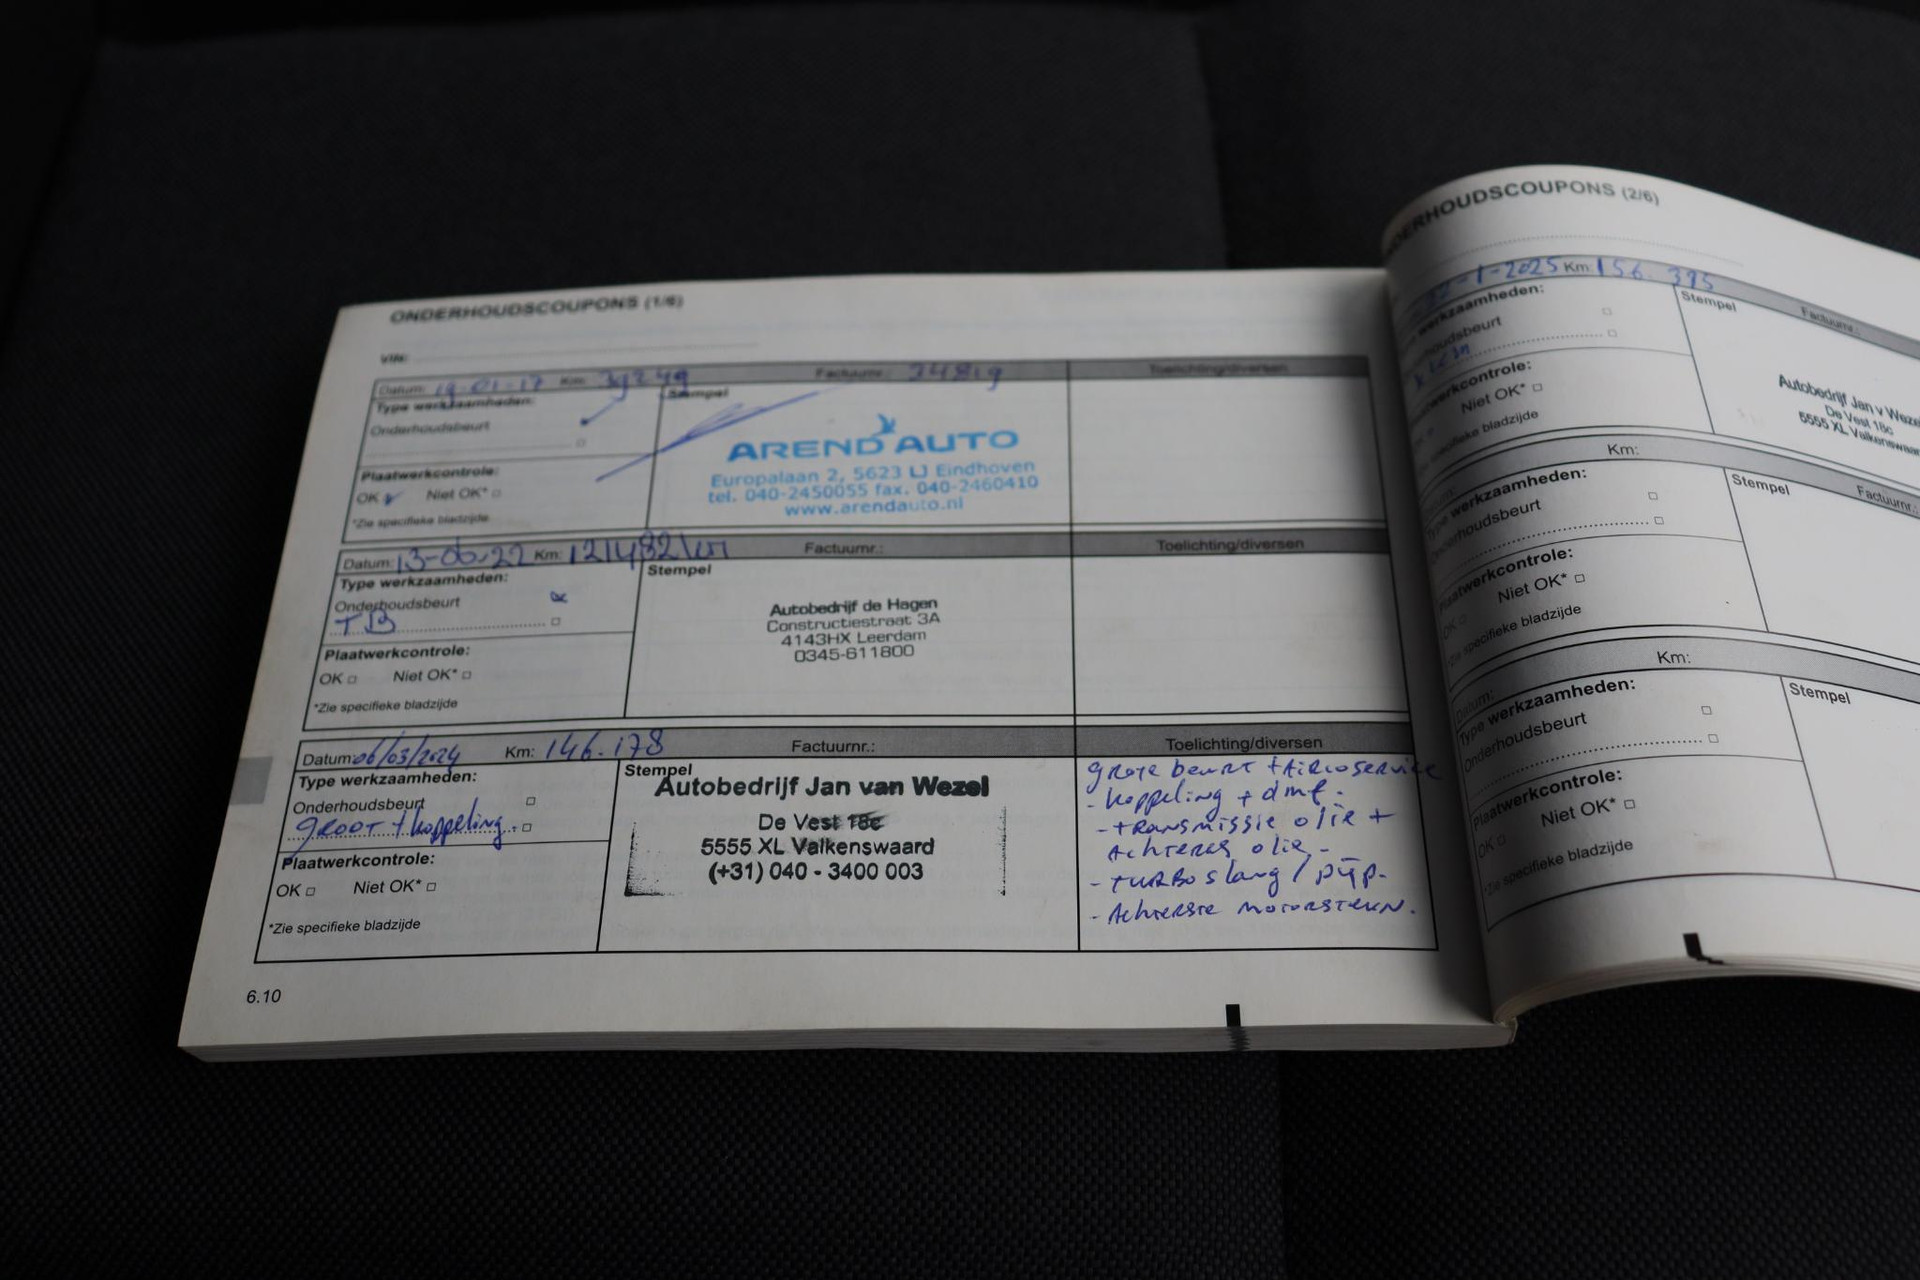 ONDERHOUDSCOUPONS (1/6)
VIN:
Datum: 19-01-17 Km: 39249 Factuurnr.: 34819 Toelichting/diversen
Type werkzaamheden:
Onderhoudsbeurt
Stempel
AREND AUTO
Europalaan 2, 5623 LJ Eindhoven
tel. 040-2450055 fax. 040-2460410
www.arendauto.nl
Plaatwerkcontrole:
OK Niet OK*
*Zie specifieke bladzijde
Datum: 13-06-22 Km: 121482 km Factuurnr.: Toelichting/diversen
Type werkzaamheden:
Onderhoudsbeurt
TB
Stempel
Autobedrijf de Hagen
Constructiestraat 3A
4143HX Leerdam
0345-611800
Plaatwerkcontrole:
OK Niet OK*
*Zie specifieke bladzijde
Datum: 06/03/2024 Km: 146.178 Factuurnr.: Toelichting/diversen
Type werkzaamheden:
Onderhoudsbeurt
GROOT + koppeling.
Stempel
Autobedrijf Jan van Wezel
De Vest 18c
5555 XL Valkenswaard
(+31) 040 - 3400 003
grote beurt + Aircoservice
- koppeling + dmf.
- transmissie olie +
Achteras olie -
- turboslang / pijp.
- Achterste motorsteun.
Plaatwerkcontrole:
OK Niet OK*
*Zie specifieke bladzijde
6.10
ERHOUDSCOUPONS (2/6)
-1-2025 Km: 156.395
Stempel Factuurnr.:
werkzaamheden:
houdsbeurt
klein
Autobedrijf Jan v Weze
De Vest 18c
5555 XL Valkenswaar
werkcontrole:
Niet OK*
specifieke bladzijde
Km:
Type werkzaamheden:
Onderhoudsbeurt
Stempel Factuurnr.:
Plaatwerkcontrole:
OK Niet OK*
*Zie specifieke bladzijde
Datum: Km:
Type werkzaamheden:
Onderhoudsbeurt
Stempel
Plaatwerkcontrole:
OK Niet OK*
*Zie specifieke bladzijde